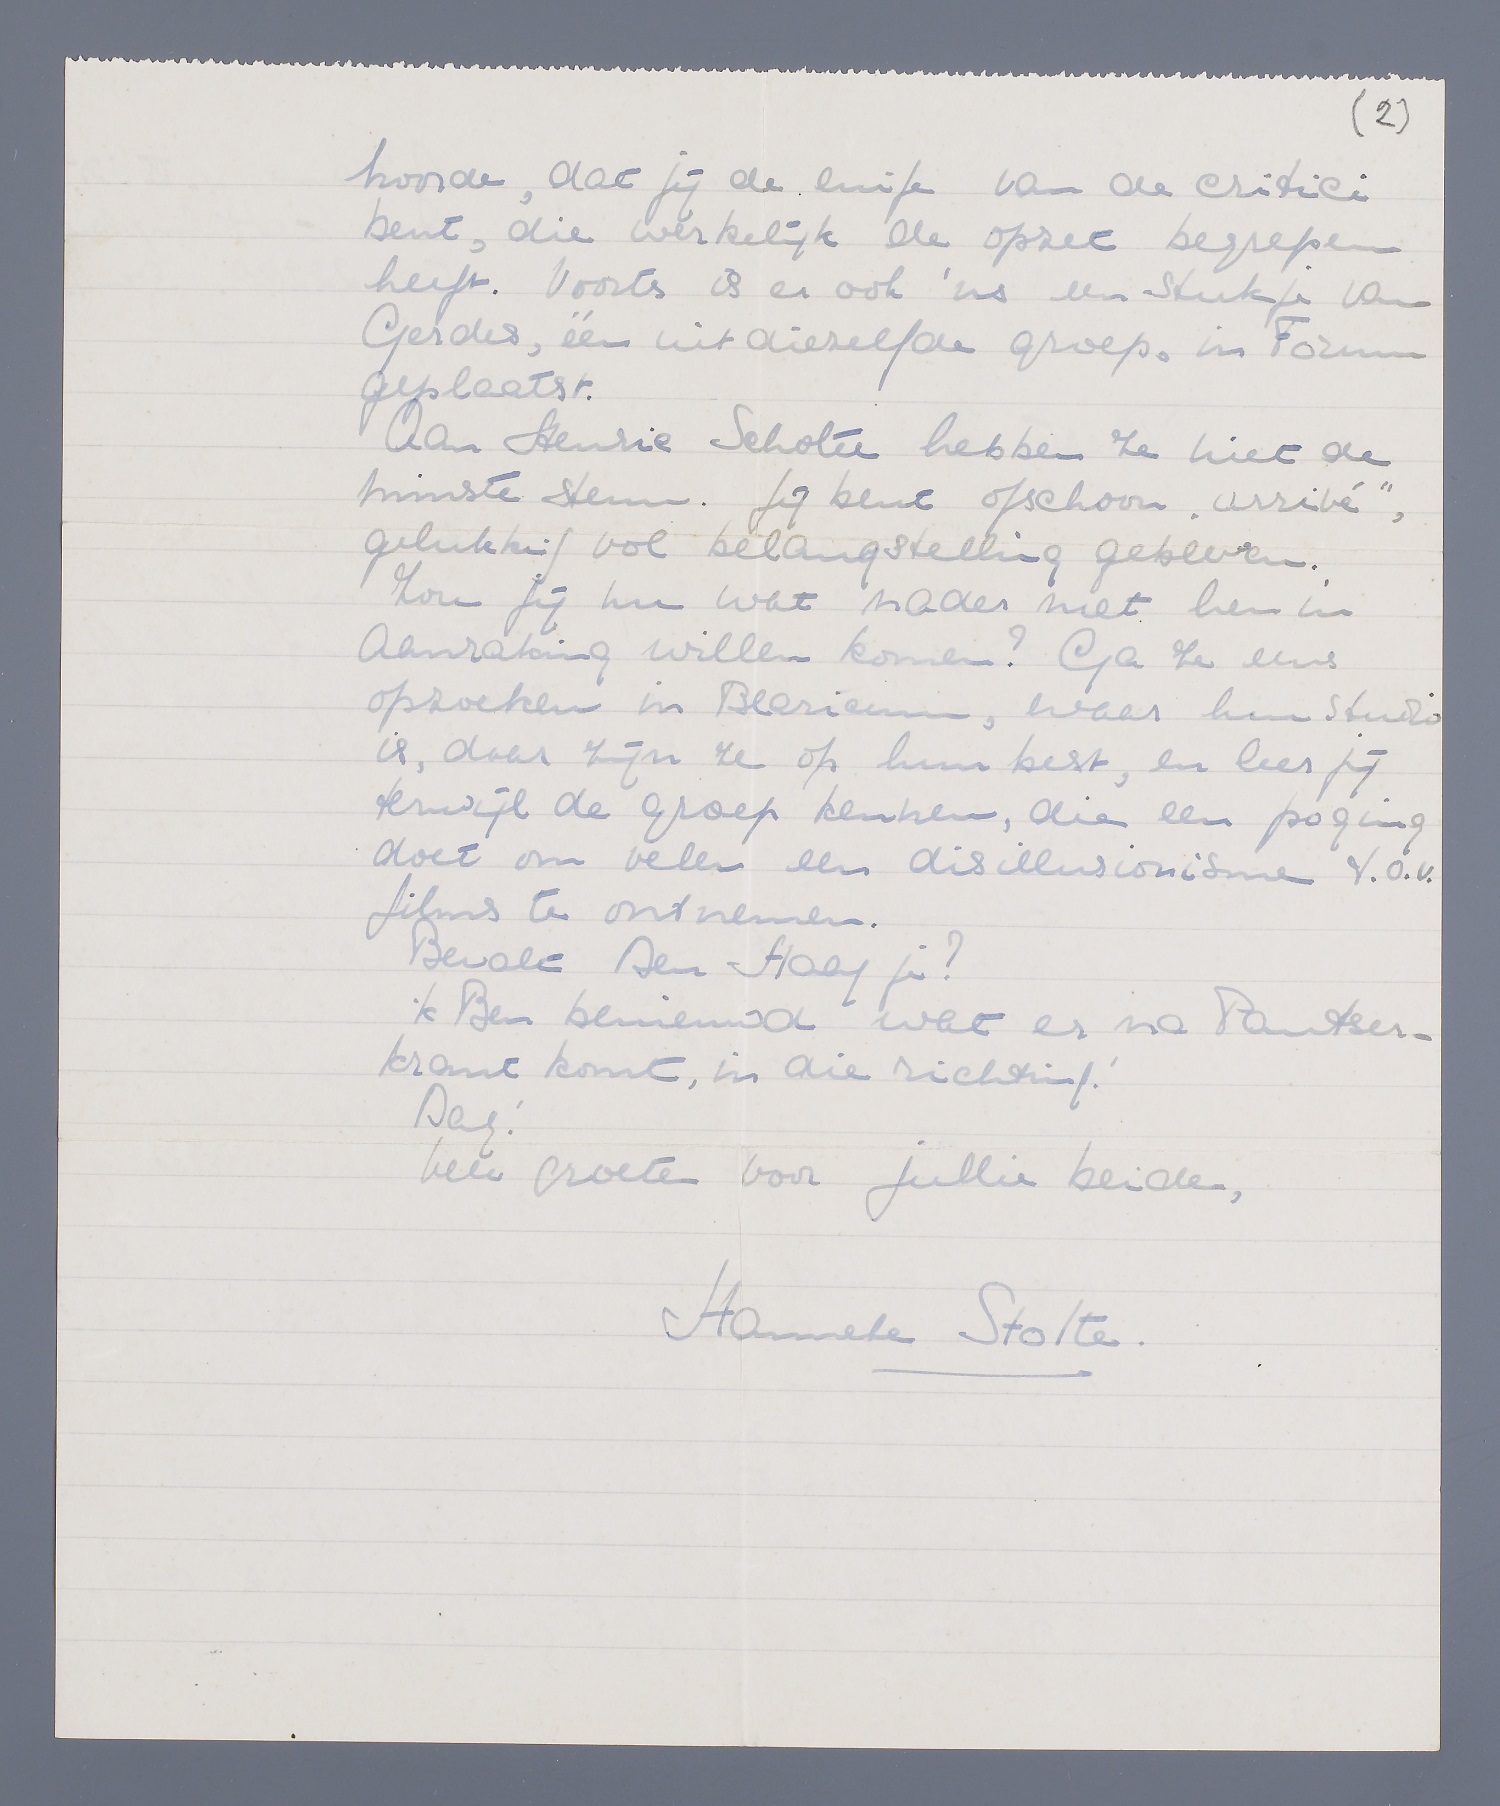 (2)
hoorde, dat jij de enige van de critici
bent, die werkelijk de opzet begrepen
heeft. Voorts is er ook 'ns een stukje van
Gerdes, één uit diezelfde groep. in Forum
geplaatst.
Aan Henrie Scholte hebben ze niet de
minste steun. Jij bent ofschoon „arrivé",
gelukkig vol belangstelling gebleven.
Zou jij nu wat nader met hen in
aanraking willen komen? Ga ze eens
opzoeken in Blaricum, waar hun studio
is, daar zijn ze op hun best, en leer jij
terwijl de groep kennen, die een poging
doet om velen een disillusionisme t.o.v.
films te ontnemen.
Bevalt Den Haag je?
ik Ben benieuwd wat er na Pantser-
krant komt, in die richting!
Dag!
Vele groeten voor jullie beiden,
Hanneke Stolte.